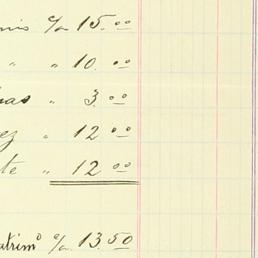 nis c/a 15.00
" " 10.00
as " 3.00
ez " 12.00
te " 12.00
atrimº c/a 13.50